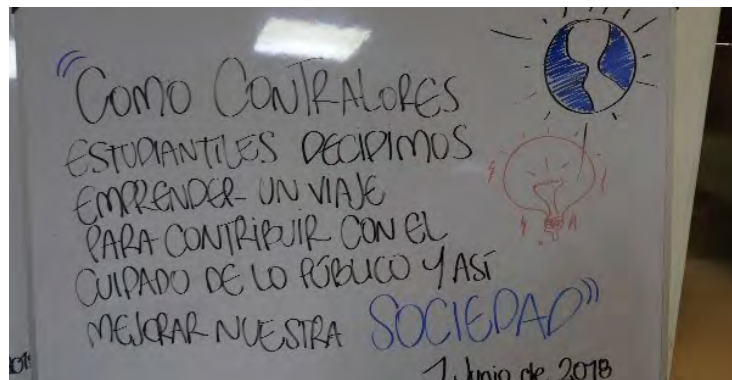 "COMO CONTRALORES
ESTUDIANTILES DECIDIMOS
EMPRENDER UN VIAJE
PARA CONTRIBUIR CON EL
CUIDADO DE LO PÚBLICO Y ASÍ
MEJORAR NUESTRA SOCIEDAD"
1 Junio de 2018